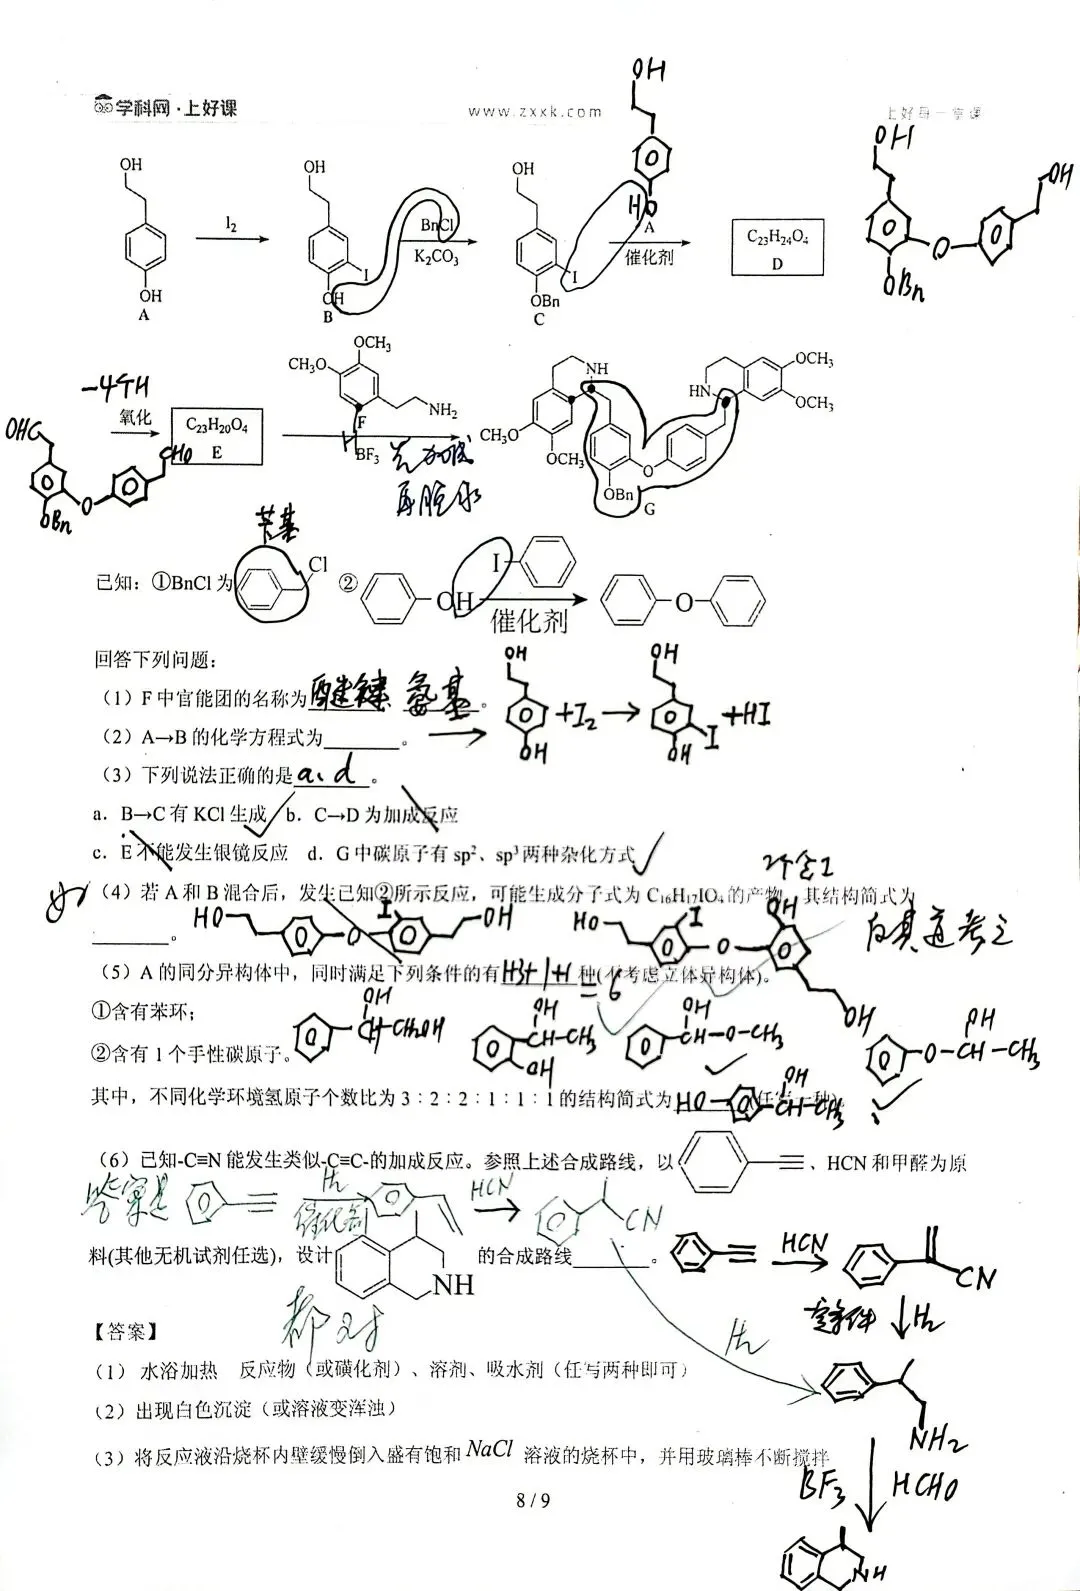 学科网·上好课 www.zxxk.com 上好每一堂课
OH
OH OH
OH OH OH
I₂ BnCl K₂CO₃ H O A 催化剂 C₂₃H₂₄O₄ D
OH A I OH B I OBn C OBn O
-4个H 氧化 C₂₃H₂₀O₄ E OCH₃ CH₃O F NH₂ H BF₃ 先加成 再脱水
OHC CHO O OBn
NH CH₃O OCH₃ O OBn G HN OCH₃ OCH₃
苄基
已知：①BnCl 为 Cl ② OH I 催化剂 O
回答下列问题：
（1）F 中官能团的名称为醚键、氨基。
（2）A→B 的化学方程式为______。 → OH OH +I₂→ OH I OH +HI
（3）下列说法正确的是a、d。
a．B→C 有 KCl 生成 b．C→D 为加成反应
c．E 不能发生银镜反应 d．G 中碳原子有 sp²、sp³ 两种杂化方式
（4）若 A 和 B 混合后，发生已知②所示反应，可能生成分子式为 C₁₆H₁₇IO₄ 的产物，其结构简式为
______。 HO O I OH HO I O OH OH
（5）A 的同分异构体中，同时满足下列条件的有 种(不考虑立体异构体)。
=6
①含有苯环；
②含有 1 个手性碳原子。
OH CH-CH₂OH OH CH-CH₃ OH OH CH-O-CH₃ O-CH-CH₃ OH
其中，不同化学环境氢原子个数比为 3∶2∶2∶1∶1∶1 的结构简式为 (任写一种)。
HO OH CH-CH₃
（6）已知-C≡N 能发生类似-C≡C-的加成反应。参照上述合成路线，以 、HCN 和甲醛为原
答案是 H₂ 催化剂 HCN CN
料(其他无机试剂任选)，设计 NH 的合成路线______。
HCN CN
H₂
都对
【答案】
（1）水浴加热 反应物（或磺化剂）、溶剂、吸水剂（任写两种即可）
H₂
（2）出现白色沉淀（或溶液变浑浊）
NH₂
（3）将反应液沿烧杯内壁缓慢倒入盛有饱和 NaCl 溶液的烧杯中，并用玻璃棒不断搅拌
BF₃ HCHO
8 / 9
NH